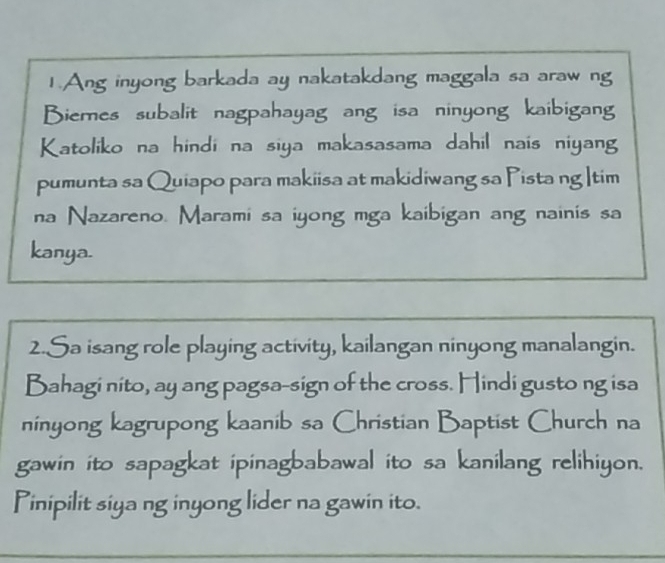 1.Ang inyong barkada ay nakatakdang maggala sa araw ng
Biernes subalit nagpahayag ang isa ninyong kaibigang
Katoliko na hindi na siya makasasama dahil nais niyang
pumunta sa Quiapo para makiisa at makidiwang sa Pista ng Itim
na Nazareno. Marami sa iyong mga kaibigan ang nainis sa
kanya.
2.Sa isang role playing activity, kailangan ninyong manalangin.
Bahagi nito, ay ang pagsa-sign of the cross. Hindi gusto ng isa
ninyong kagrupong kaanib sa Christian Baptist Church na
gawin ito sapagkat ipinagbabawal ito sa kanilang relihiyon.
Pinipilit siya ng inyong lider na gawin ito.